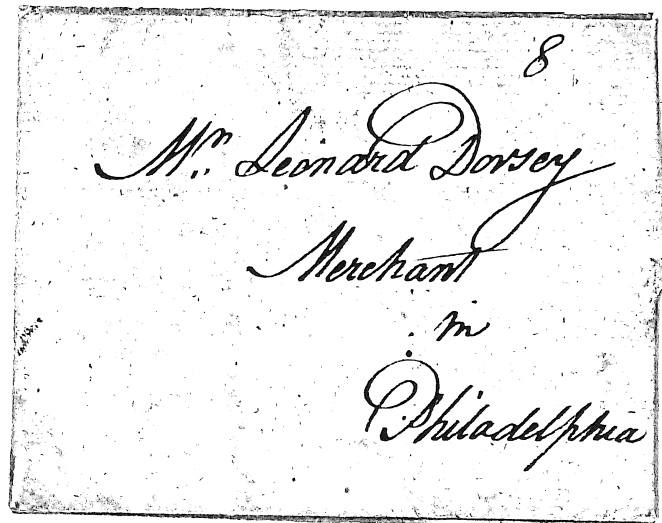 8
Mr. Leonard Dorsey
Merchant
in
Philadelphia